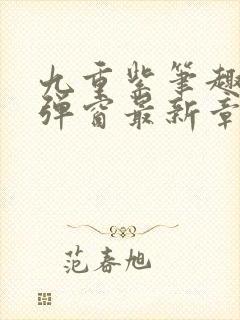 九重紫笔趣
弹窗最新章
范春旭